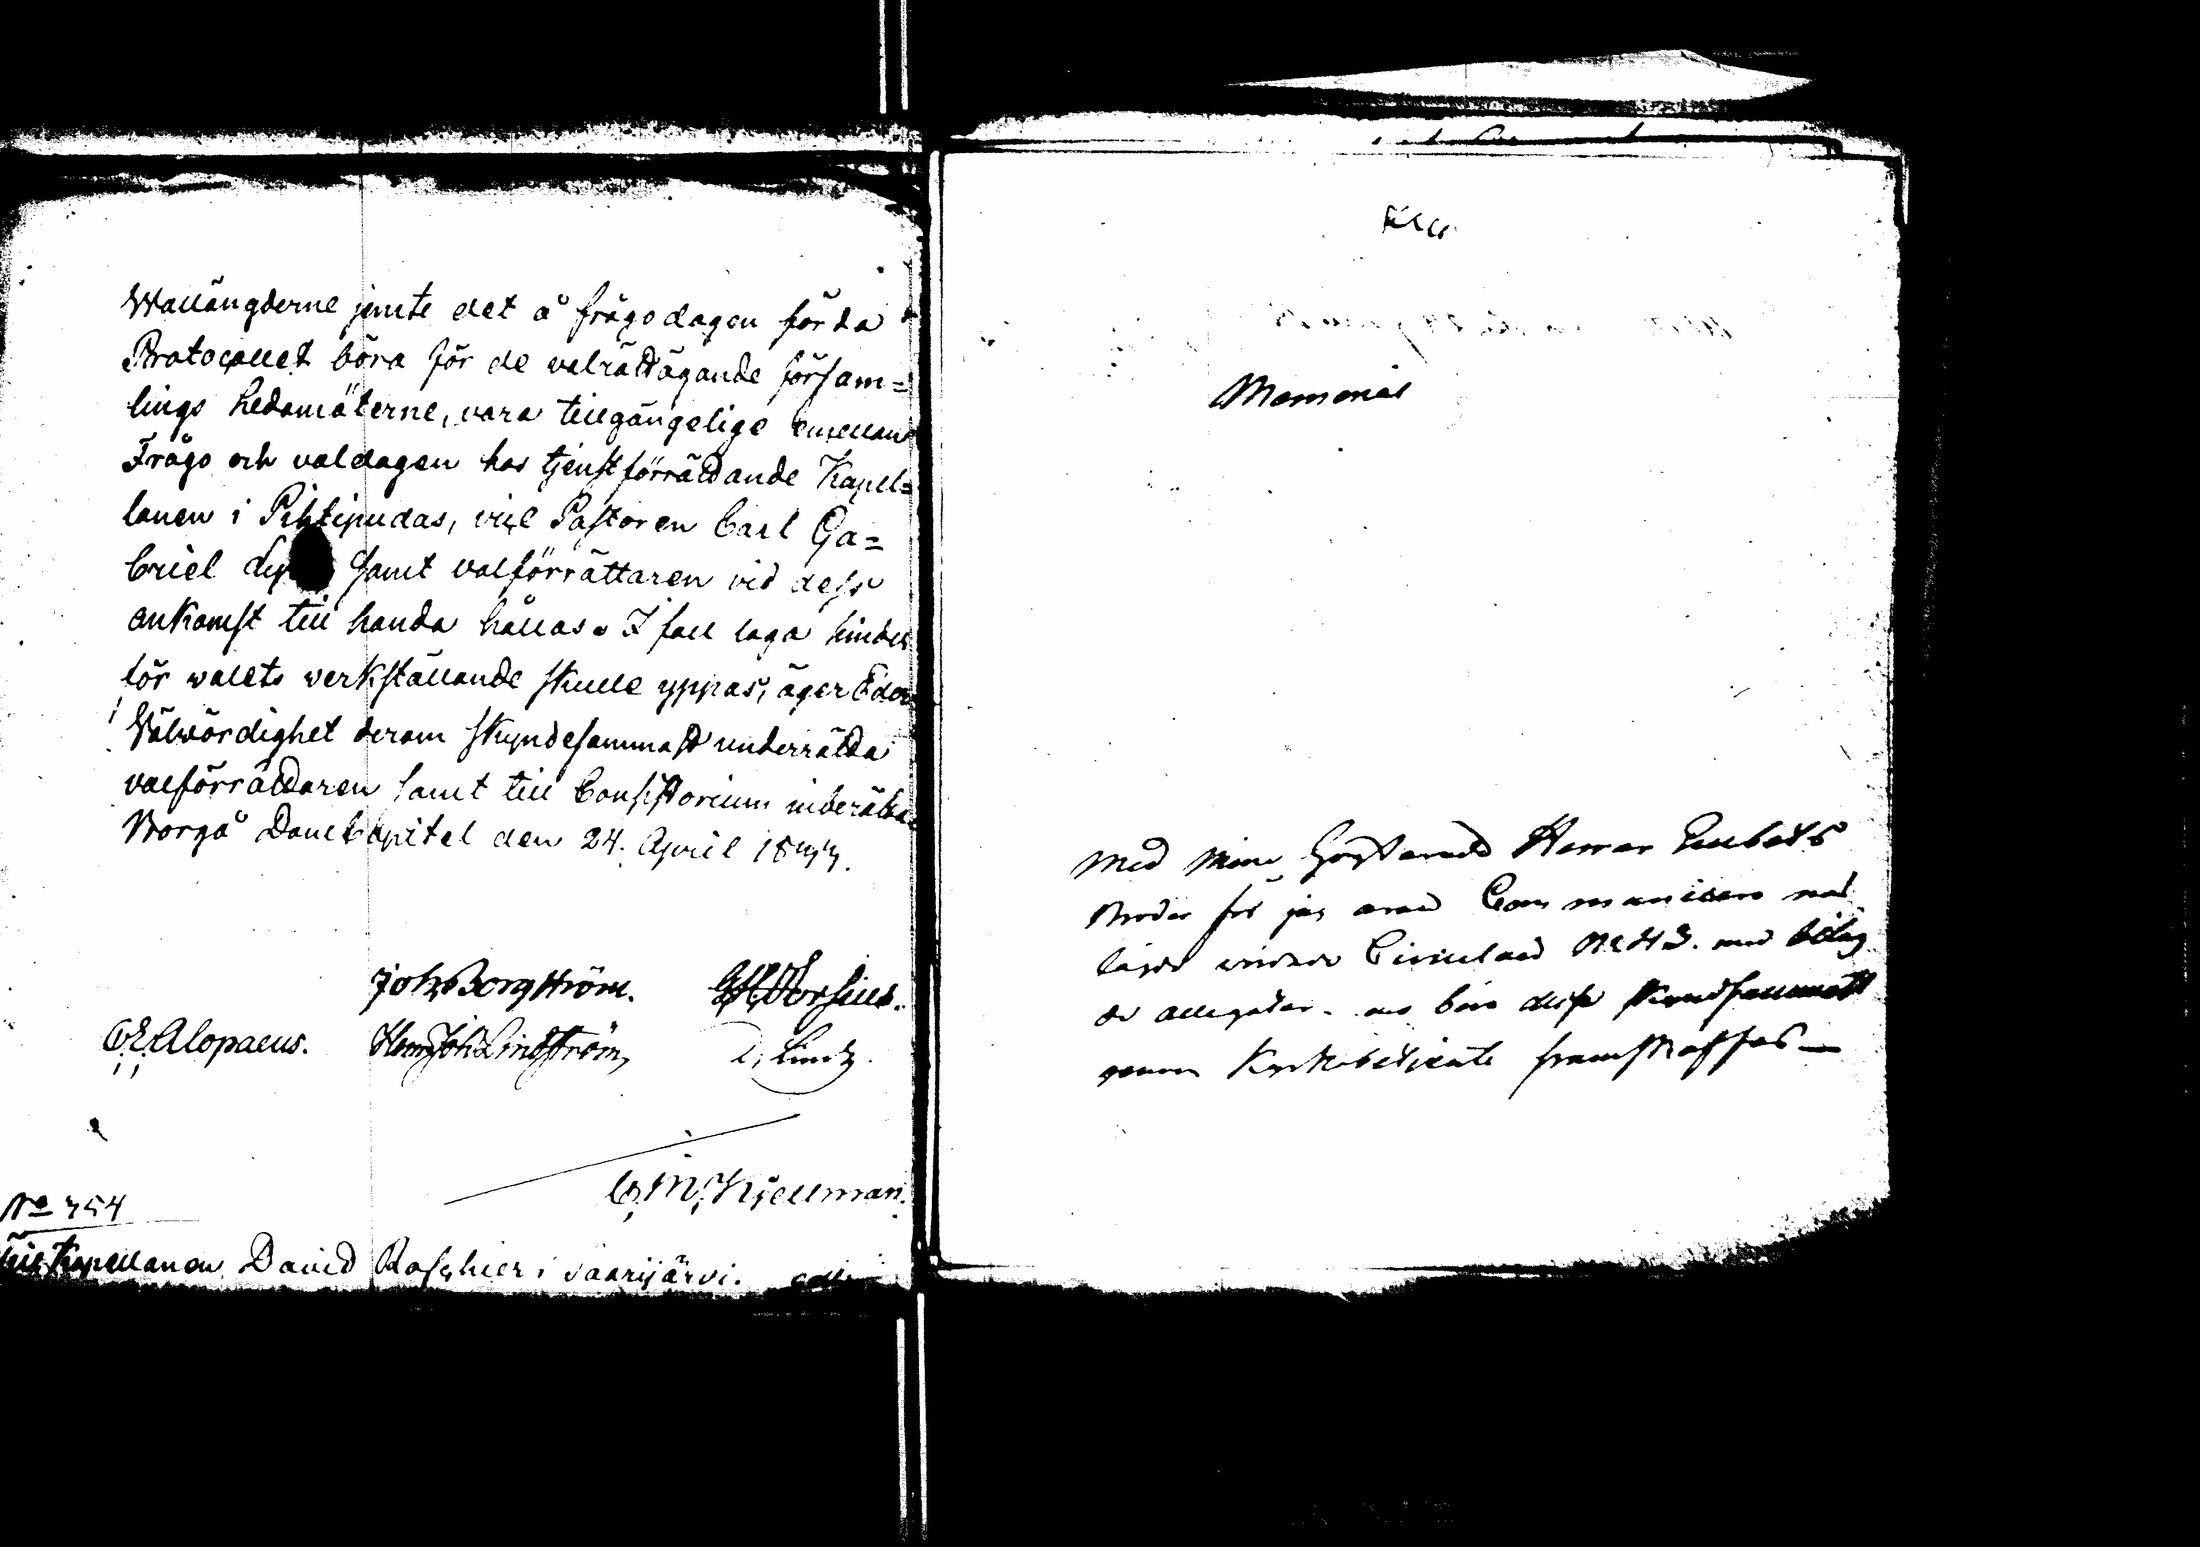 Wallängderne jemte det å frågodagen förda
Protocollet böra för de valrättägande försam=
lings ledamöterne, vara tillgängelige emellan
Frågo och valdagen hos tjenstförrättande Kapel=
lanen i Pihtipudas, vice Pastoren Carl Ga=
briel samt valförrättaren vid dess
ankomst till handa hållas. I fall laga hinder
för valets verkställande skulle yppas, äger Eder
Välvördighet derom skyndesammast underrätta
valförrättaren samt till Consistorium inberätta.
Borgå DomCapitel den 24. April 1844.
Joh. Borgström.
C. E. Alopaeus. Henr. Joh. Lindström,
C. M. Kjellman.
No 754
Till Kapellanen David Roschier i Saarijärvi.
Memorial
Med mine Herrar Embets
Bröder får jag äran Communicera
Circulaire No 43. med bilag
de allegater. böra desse skyndsammast
genom Kyrkobetjente framskaffas —